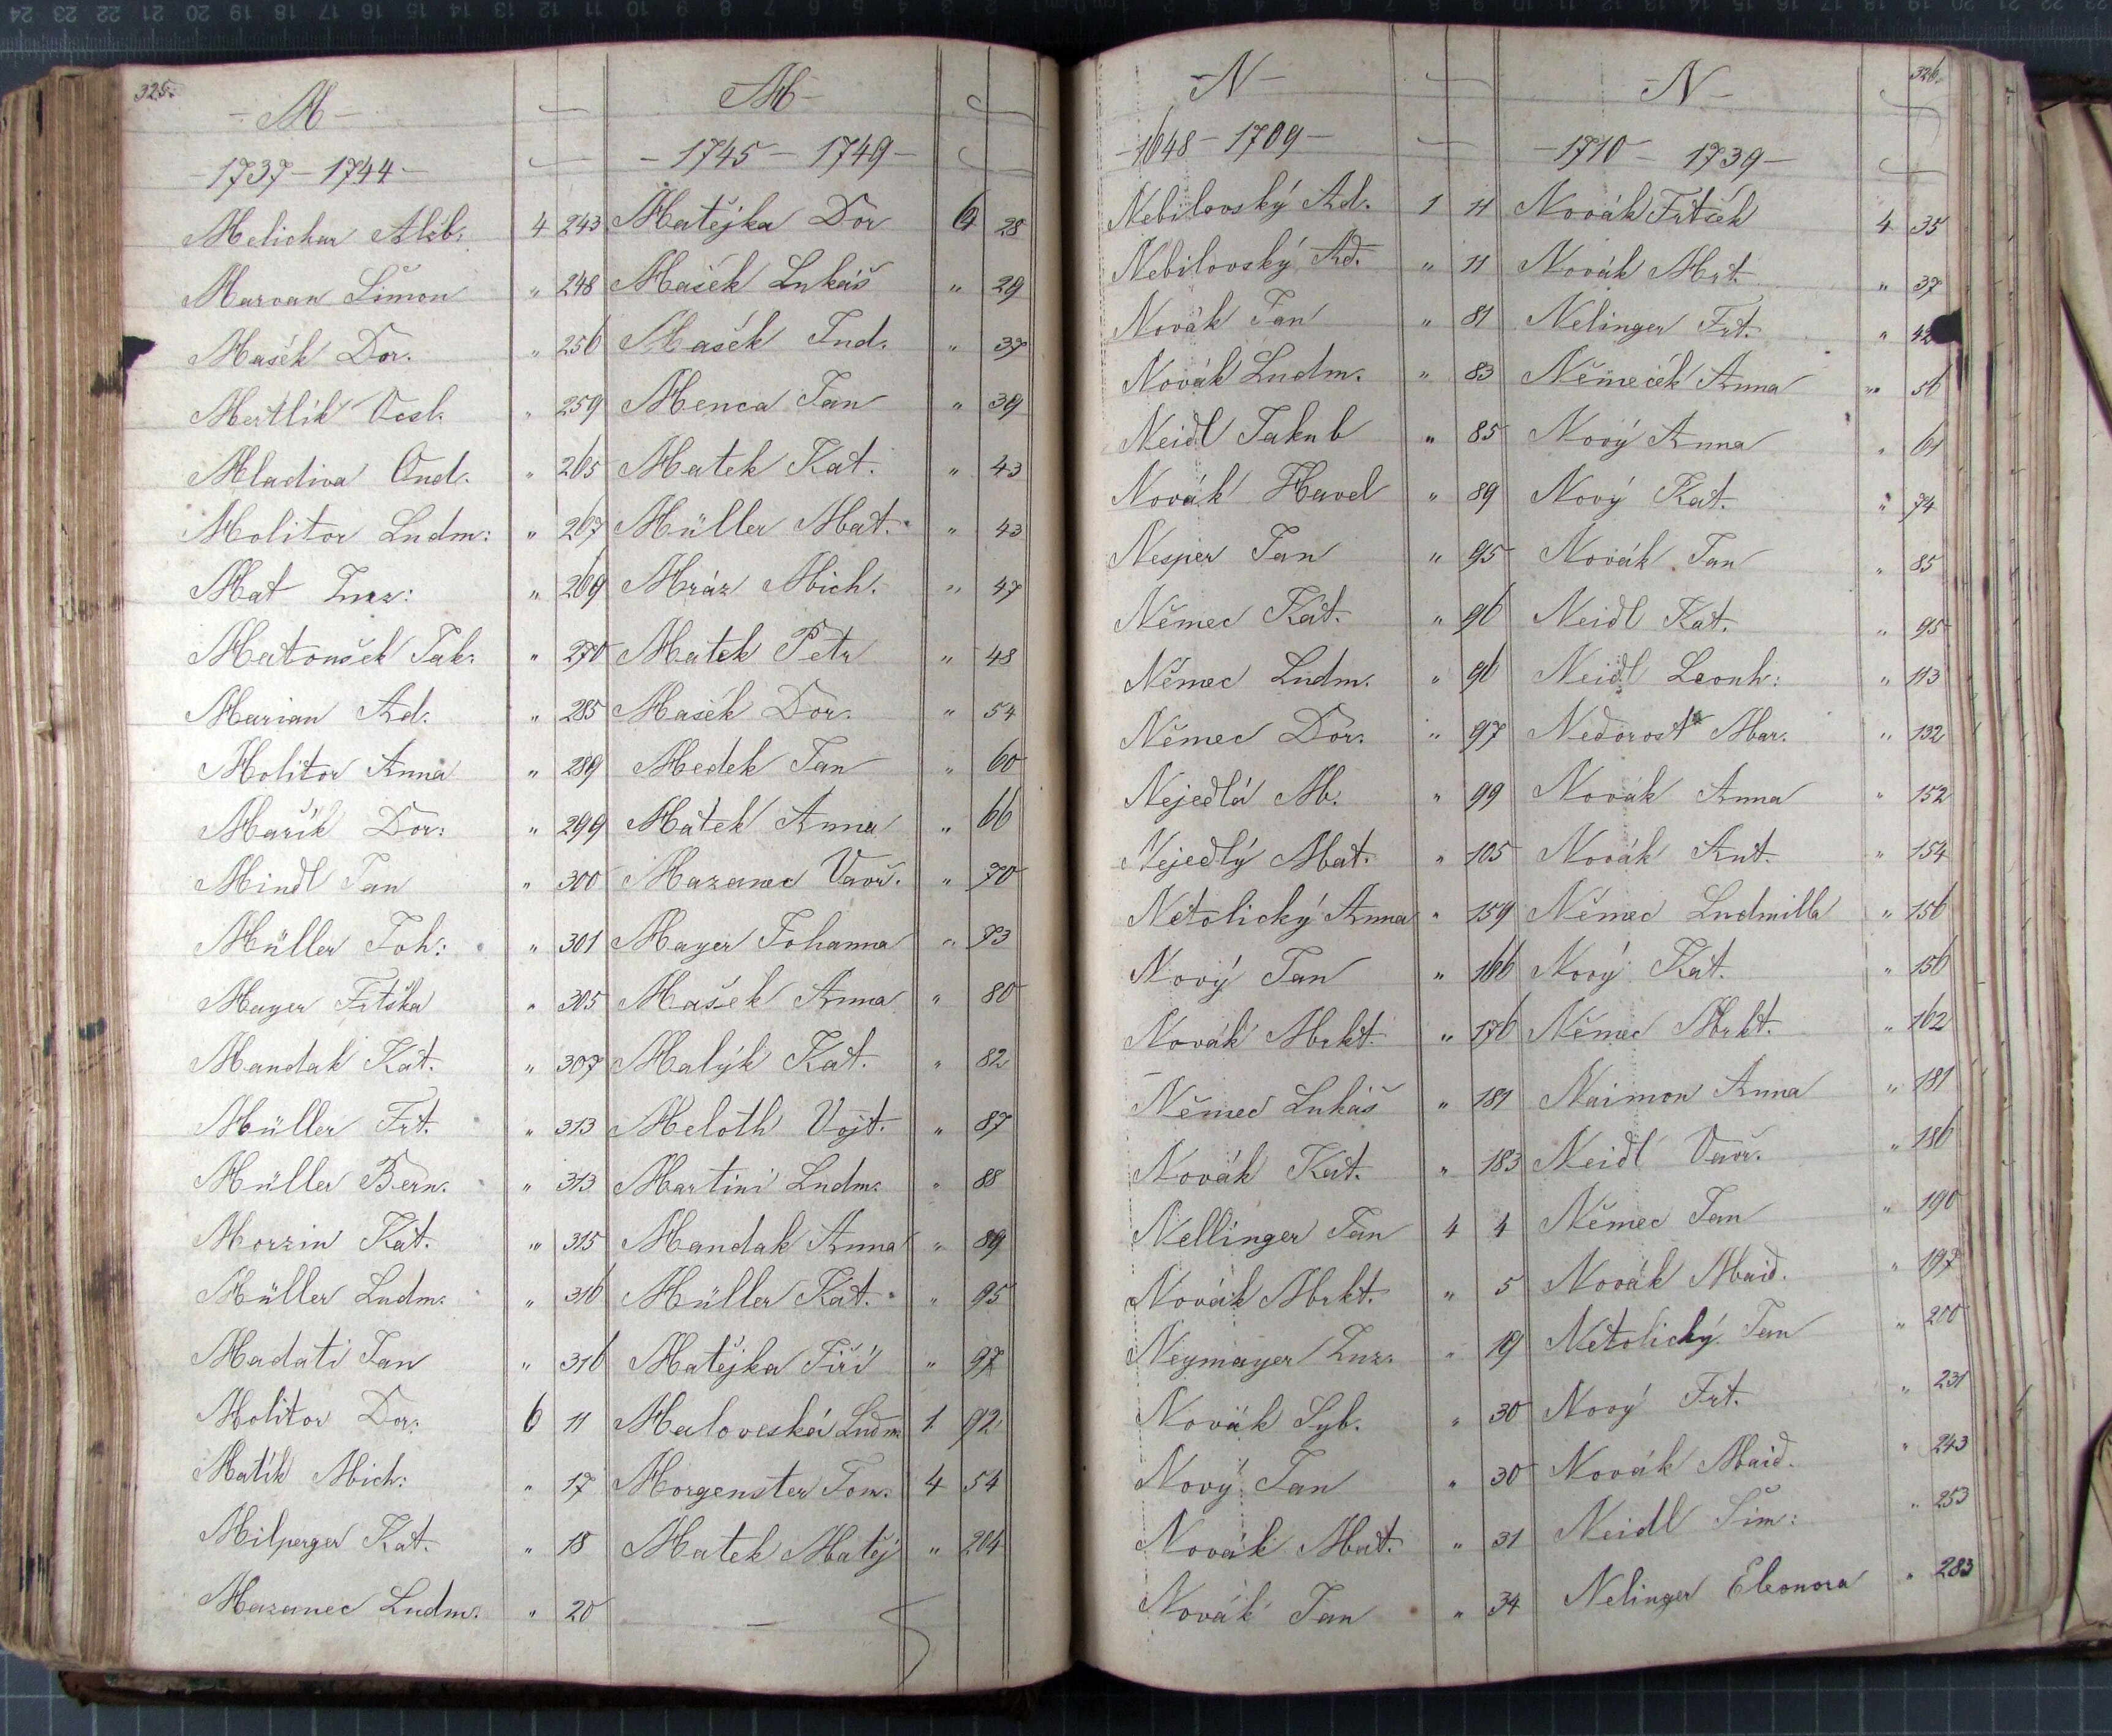 325.
- M -
- 1737 - 1744 -
Melichar Alžb. 4 243
Marvan Šimon " 248
Mašek Dor. " 256
Mertlík Vcsl. " 259
Mladiva Ond. " 265
Molitor Ludm: " 267
Mat Zuz: " 269
Matoušek Jak: " 270
Marian Ad. " 285
Molitor Anna " 289
Mařík Dor: " 299
Mindl Jan " 300
Müller Joh: " 301
Mayer Frtška " 305
Mandak Kat. " 307
Müller Frt. " 313
Müller Bern. " 313
Morzin Kat. " 315
Müller Ludm. " 316
Madati Jan " 316
Molitor Dor. 6 11
Matík Mich: " 17
Milperger Kat. " 18
Mazanec Ludm. " 20
M -
- 1745 - 1749 -
Matějka Dor 6 28
Mašek Lukáš " 29
Mašek Ind. " 37
Menca Jan " 39
Matek Kat. " 43
Müller Mat. " 43
Mráz Mich. " 47
Matek Petr " 48
Mašek Dor. " 54
Medek Jan " 60
Matek Anna " 66
Mazanec Vavř. " 70
Mayer Johanna " 73
Mašek Anna " 80
Malýk Kat. " 82
Meloth Vojt. " 87
Martini Ludm. " 88
Mandak Anna " 89
Müller Kat. " 95
Matějka Jiří " 97
Malovcská Ludm. 1 92
Morgenster Tom. 4 54
Matek Matěj " 204
—
- N -
- 1648 - 1709 -
Nebilovský Ad. 1 11
Nebilovský Ad. " 11
Novák Jan " 81
Novák Ludm. " 83
Neidl Jakub " 85
Novák Havel " 89
Nesper Jan " 95
Němec Kat. " 96
Němec Ludm. " 96
Němec Dor. " 97
Nejedlá M. " 99
Nejedlý Mat. " 105
Netolický Anna " 159
Nový Jan " 166
Novák Mrkt. " 176
Němec Lukáš " 181
Novák Kat. " 183
Nellinger Jan 4 4
Novák Mrkt. " 5
Neymayer Zuz. " 19
Novák Syb. " 30
Nový Jan " 30
Novák Mat. " 31
Novák Jan " 34
326.
N -
- 1710 - 1739 -
Novák Frtšek 4 35
Novák Mrt. " 37
Nelinger Frt. " 42
Němeček Anna " 56
Nový Anna " 61
Nový Kat. " 74
Novák Jan " 85
Neidl Kat. " 95
Neidl Leonh: " 113
Nedorost Mar. " 132
Novák Anna " 152
Novák Ant. " 154
Němec Ludmilla " 156
Nový Kat. " 156
Němec Mrkt. " 162
Naimon Anna " 181
Neidl Vavř. " 186
Němec Jan " 190
Novák Maid. " 197
Netolický Jan " 200
Nový Frt. " 231
Novák Maid. " 243
Neidl Šim: " 253
Nelinger Eleonora " 283